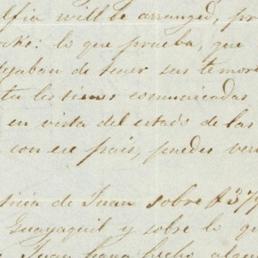 lfia will be arranged, pr
lo que prueba, que
dejaban de tener sus temor
comunicadas
en vista del estado de las
con ese pais, puedes ver
ticia de Juan sobre $37
Guayaquil y sobre lo q
Juan haya hecho algun